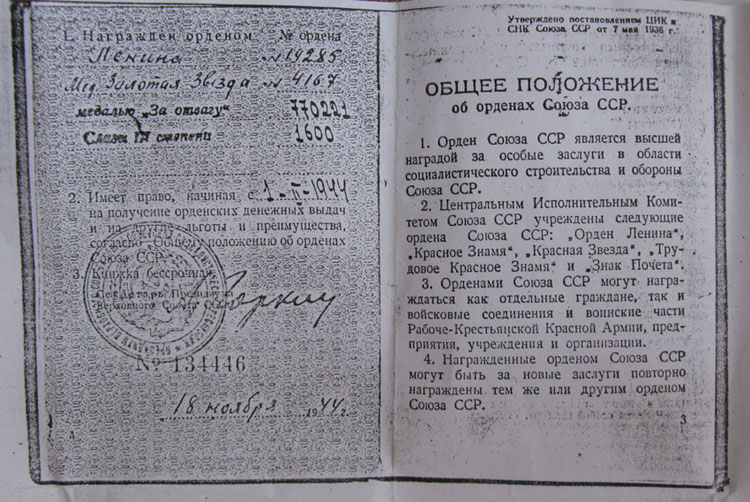 1. Награжден орденом № ордена
Ленина № 19285
Мед. Золотая Звезда № 4167
медалью „За отвагу“ 770221
Слава III степени 1600
2. Имеет право, начиная с
на получение орденских денежных выдач
и на другие льготы и преимущества,
согласно „Общему положению об орденах
Союза ССР“.
3. Книжка бессрочная
Секретарь Президиума
Верховного Совета СССР
№ 134446
18 ноября 1944 г.
Утверждено постановлением ЦИК и
СНК Союза ССР от 7 мая 1936 г.
ОБЩЕЕ ПОЛОЖЕНИЕ
об орденах Союза ССР.
1. Орден Союза ССР является высшей
наградой за особые заслуги в области
социалистического строительства и обороны
Союза ССР.
2. Центральным Исполнительным Коми-
тетом Союза ССР учреждены следующие
ордена Союза ССР: „Орден Ленина“,
„Красное Знамя“, „Красная Звезда“, „Тру-
довое Красное Знамя“ и „Знак Почета“.
3. Орденами Союза ССР могут награ-
ждаться как отдельные граждане, так и
войсковые соединения и воинские части
Рабоче-Крестьянской Красной Армии, пред-
приятия, учреждения и организации.
4. Награжденные орденом Союза ССР
могут быть за новые заслуги повторно
награждены тем же или другим орденом
Союза ССР.
3